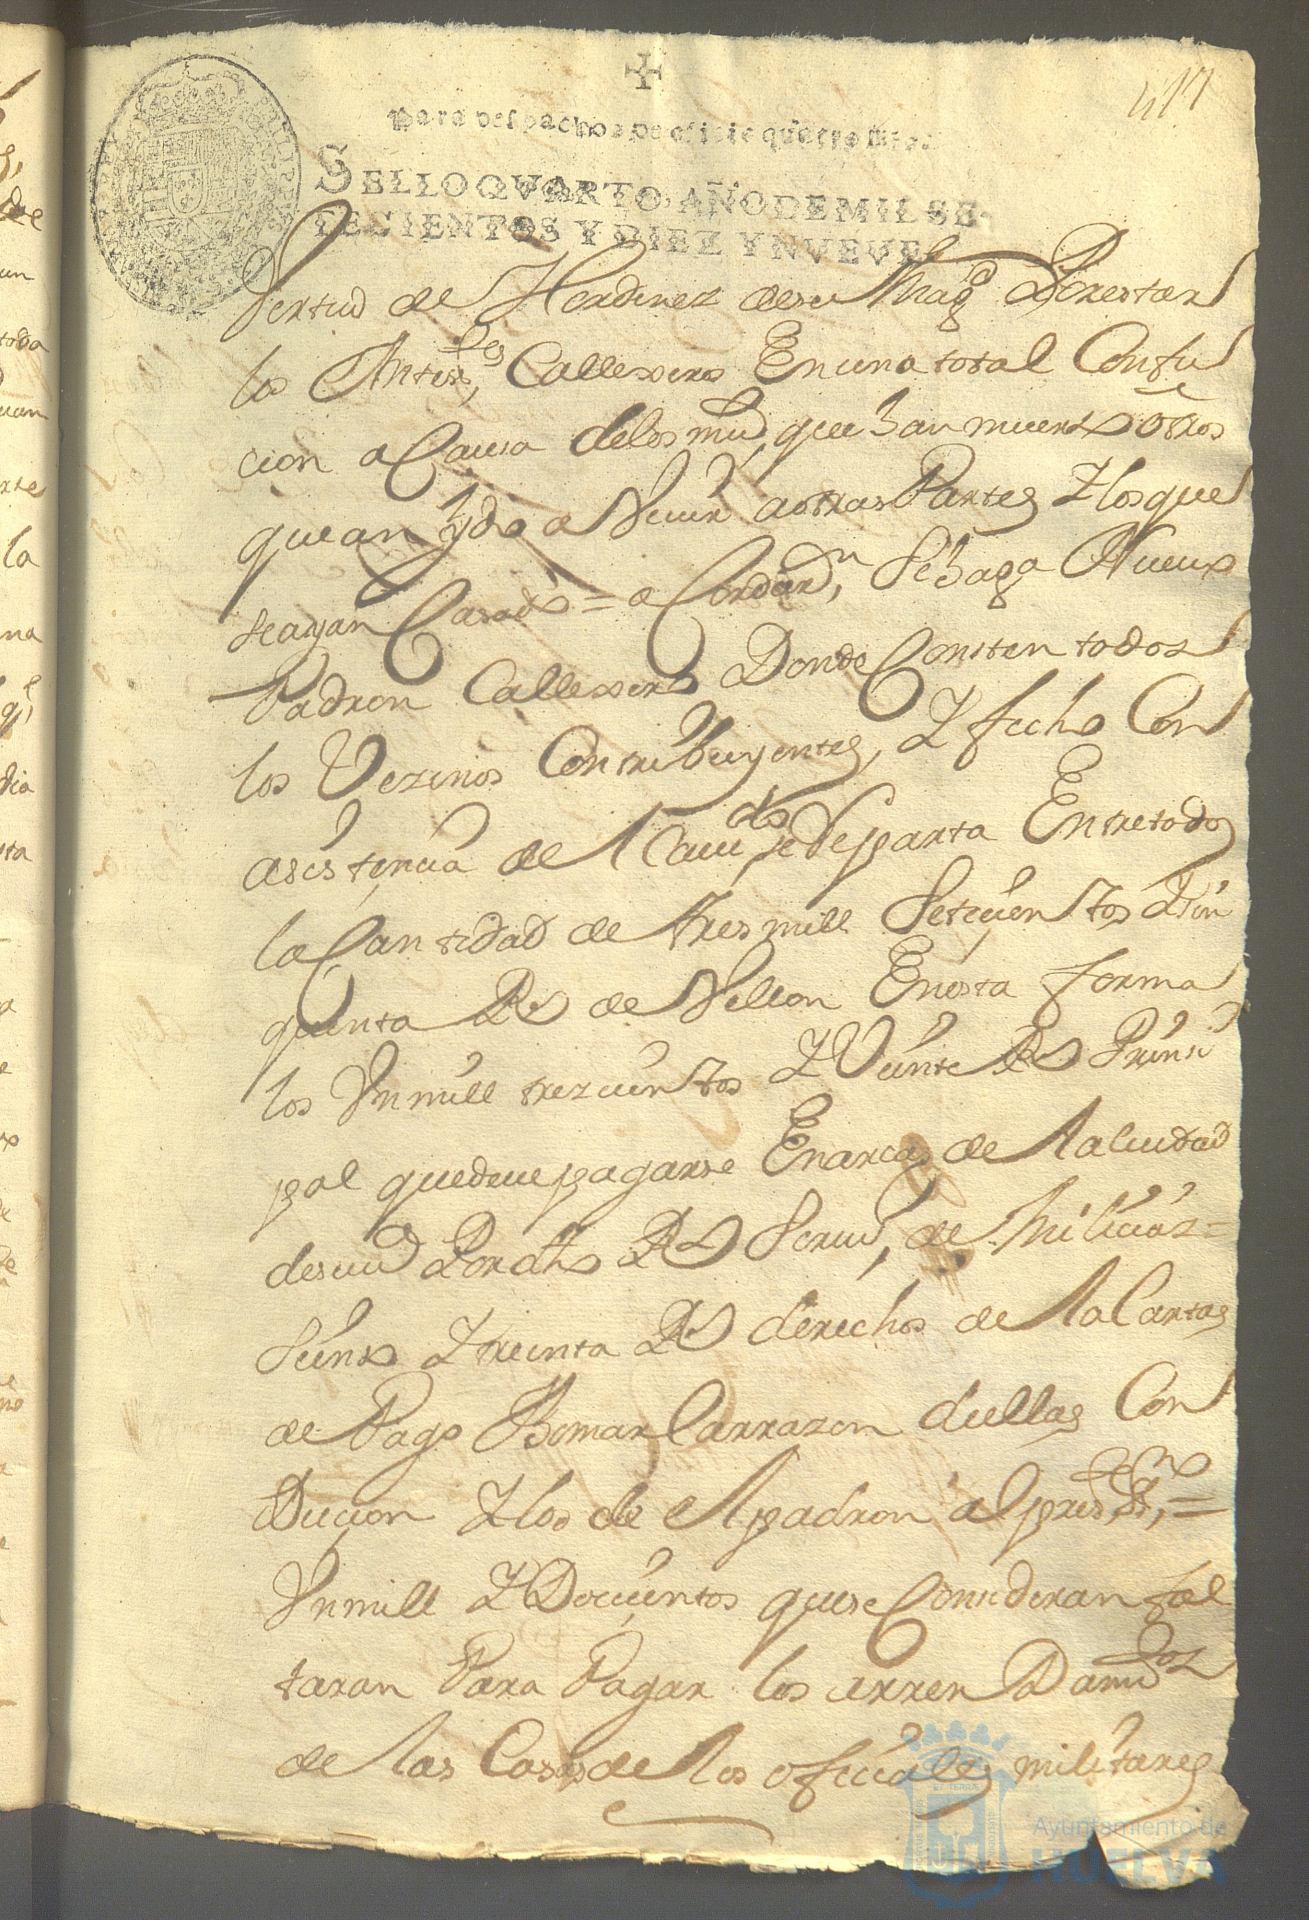 417
Para despachos de oficio quatro mrs.
SELLO QVARTO, AÑO DE MIL SE
TECIENTOS Y DIEZ Y NVEVE
Vertud de Hordenez de su Magd Por estar
los Anteres, Callesseros En una total Confu
cion a Causa de los muo que han muerto otros
que an ydo a Viuir a otras Partes Y los que
se ayan Casado = a Cordarn, Se haga Nueuo
Padron Callessero Donde Consten todos
los Vezinos Contribuyentes, Y fecho Con
asistencia de los Caudos se Reparta Entre todos
la Cantidad de tres mill Setecientos Y sin
quenta Rs de Vellon En esta forma
los Vn mill trezcientos Y Veinte Rs Prinsi
pal que deue pagarse En arcas de la ciudad
de seud Por dho Rl Seruo, de Milicias =
Sento Y treinta Rs derechos de la Cartas
de Pago Tomar la rrazon de ellas Con
Ducion Y los de el padron al presste Esno, =
Vn mill Y Docientos que se Consideran fal
taran Para Pagar los arrendamtos
de las Casas de los oficiales militares
Ayuntamiento de
HUELVA